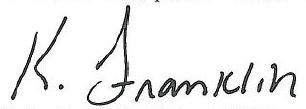 K. Franklin